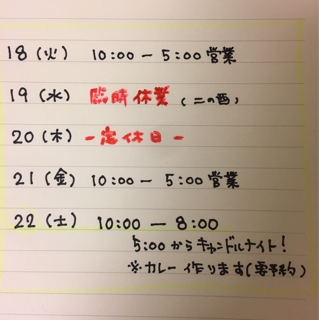 18(火) 10:00 ― 5:00 営業
19(水) 臨時休業 (二の酉)
20(木) -定休日-
21(金) 10:00 ― 5:00 営業
22(土) 10:00 ― 8:00
5:00からキャンドルナイト!
※カレー作ります(要予約)